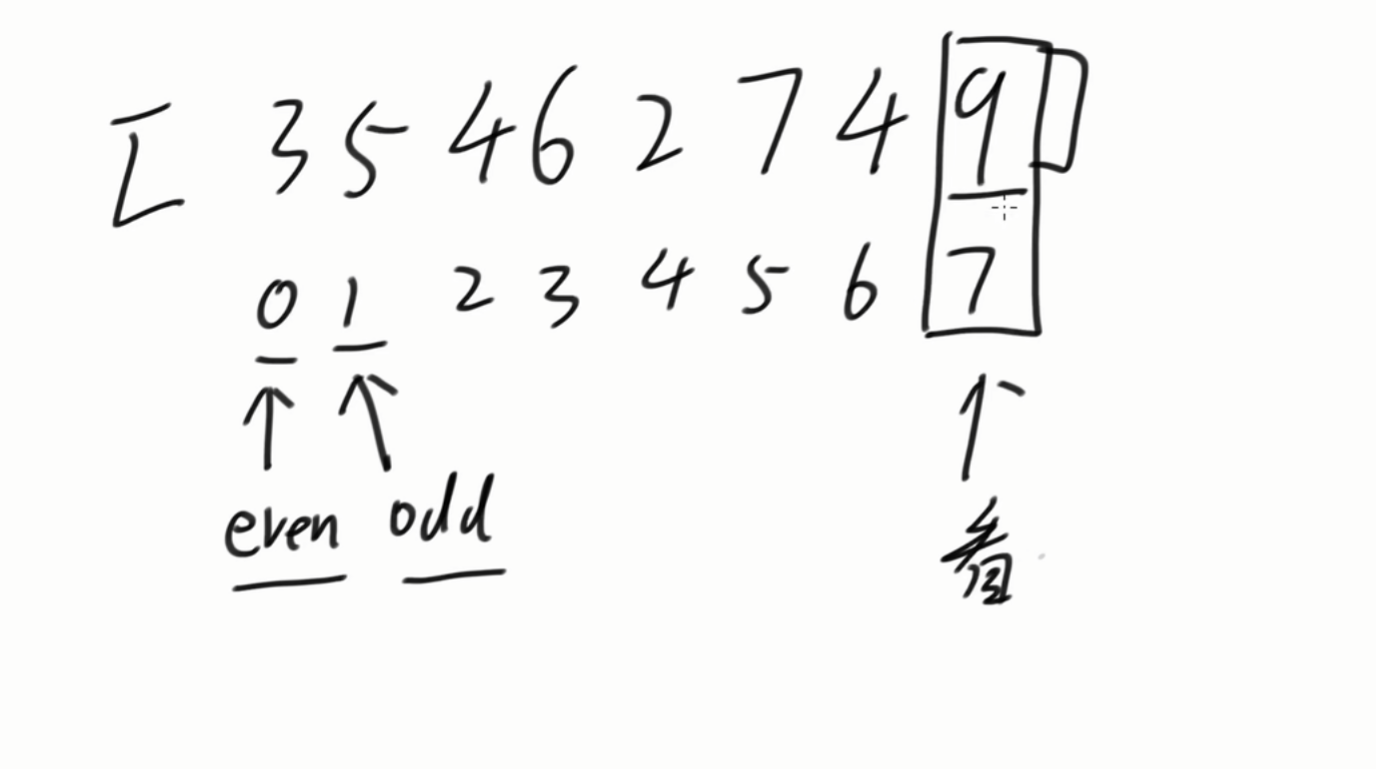 [ 3 5 4 6 2 7 4 9 ]
0 1 2 3 4 5 6 7
even odd 看